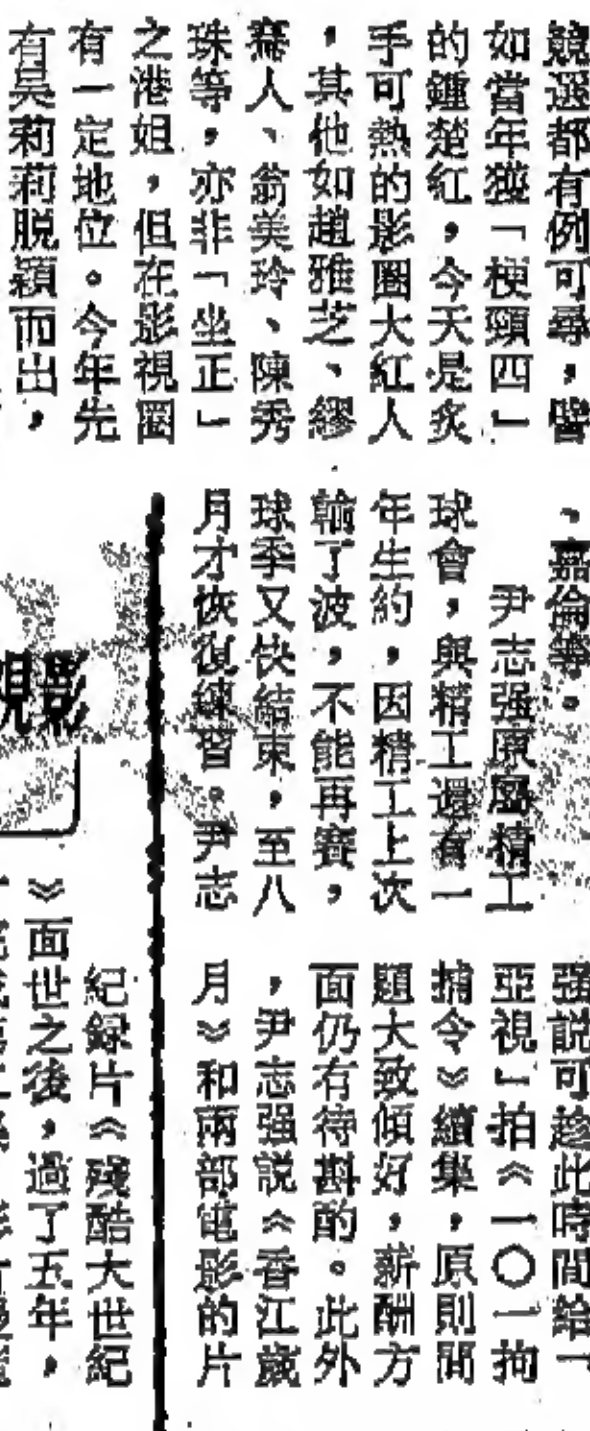 競選都有例可尋，譬
如當年獲「梗頸四」
的鍾楚紅，今天是炙
手可熱的影圈大紅人
，其他如趙雅芝、繆
騫人、翁美玲、陳秀
珠等，亦非「坐正」
之港姐，但在影視圈
有一定地位。今年先
有吴莉莉脱穎而出，
、嘉倫等。
尹志强原屬精工
球會，與精工還有一
年生約，因精工上次
輸了波，不能再賽，
球季又快結束，至八
月才恢復練習。尹志
强説可趁此時間給「
亞視」拍《一〇一拘
捕令》續集，原則問
題大致傾好，薪酬方
面仍有待斟酌。此外
，尹志强説《香江歲
月》和兩部電影的片
影視
紀録片《殘酷大世紀
》面世之後，過了五年，